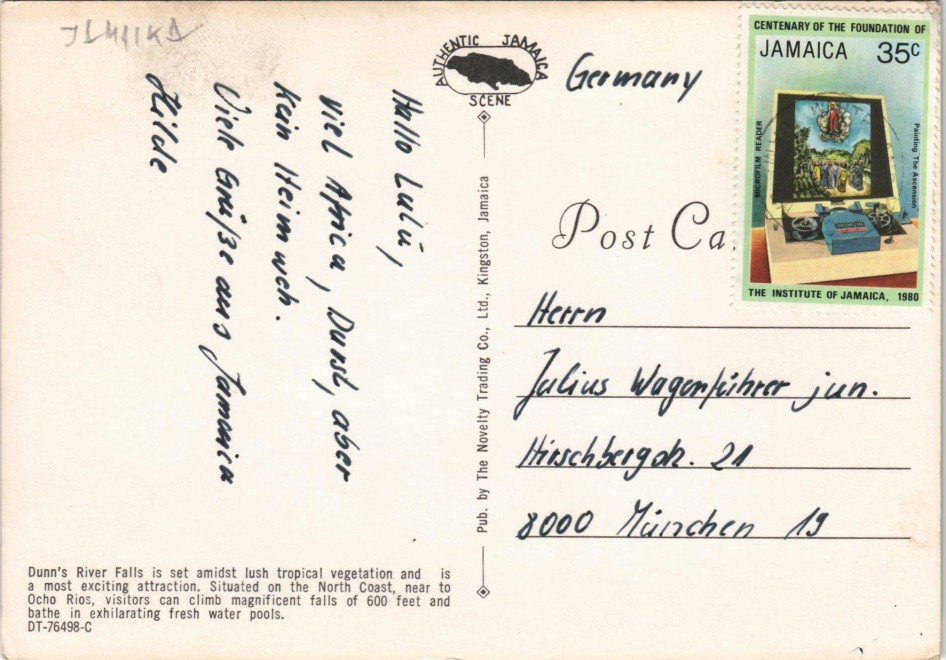 JAMAIKA
AUTHENTIC JAMAICA
SCENE
Germany
CENTENARY OF THE FOUNDATION OF
JAMAICA 35c
MICROFILM READER
Painting The Ascension
THE INSTITUTE OF JAMAICA, 1980
Hallo Lulü,
viel Africa, Durst, aber
kein Heimweh.
Viele Grüße aus Jamaica
Hilde
Pub. by The Novelty Trading Co., Ltd., Kingston, Jamaica
Post Ca
Herrn
Julius Wagenführer jun.
Hirschbergstr. 21
8000 München 19
Dunn's River Falls is set amidst lush tropical vegetation and is
a most exciting attraction. Situated on the North Coast, near to
Ocho Rios, visitors can climb magnificent falls of 600 feet and
bathe in exhilarating fresh water pools.
DT-76498-C